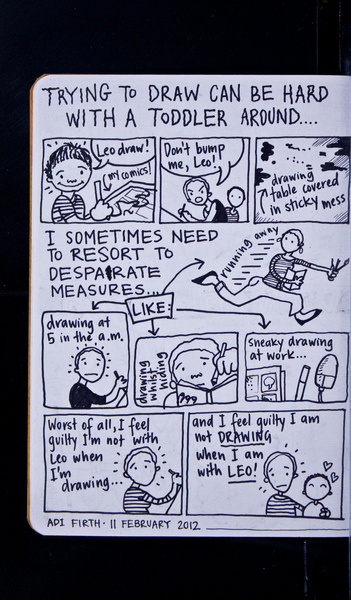 TRYING TO DRAW CAN BE HARD
WITH A TODDLER AROUND....
Leo draw!
my comics!
Don't bump
me, Leo!
drawing
table covered
in sticky mess
I SOMETIMES NEED
TO RESORT TO
DESPARATE
MEASURES...
running away
LIKE:
drawing at
5 in the a.m.
drawing
whilst
hiding
???
Sneaky drawing
at work...
Worst of all, I feel
guilty I'm not with
Leo when
I'm
drawing...
and I feel guilty I am
not DRAWING
when I am
with LEO!
ADI FIRTH · 11 FEBRUARY 2012